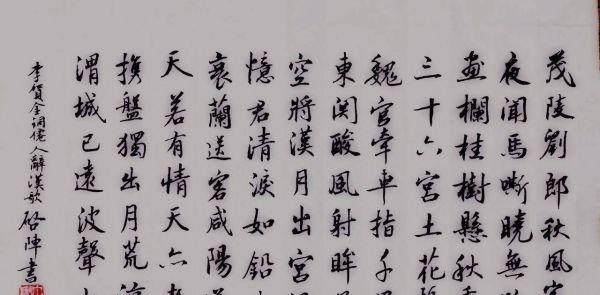 茂陵劉郎秋風
夜闻馬嘶曉無
畫欄桂樹懸秋
三十六宮土花
魏官牽車指千
東関酸風射眸
空將漢月出宮
憶君清淚如鉛
衰蘭送客咸陽
天若有情天亦
携盤獨出月荒
渭城已遠波聲
李賀金銅僊人辭漢歌 啓陣書